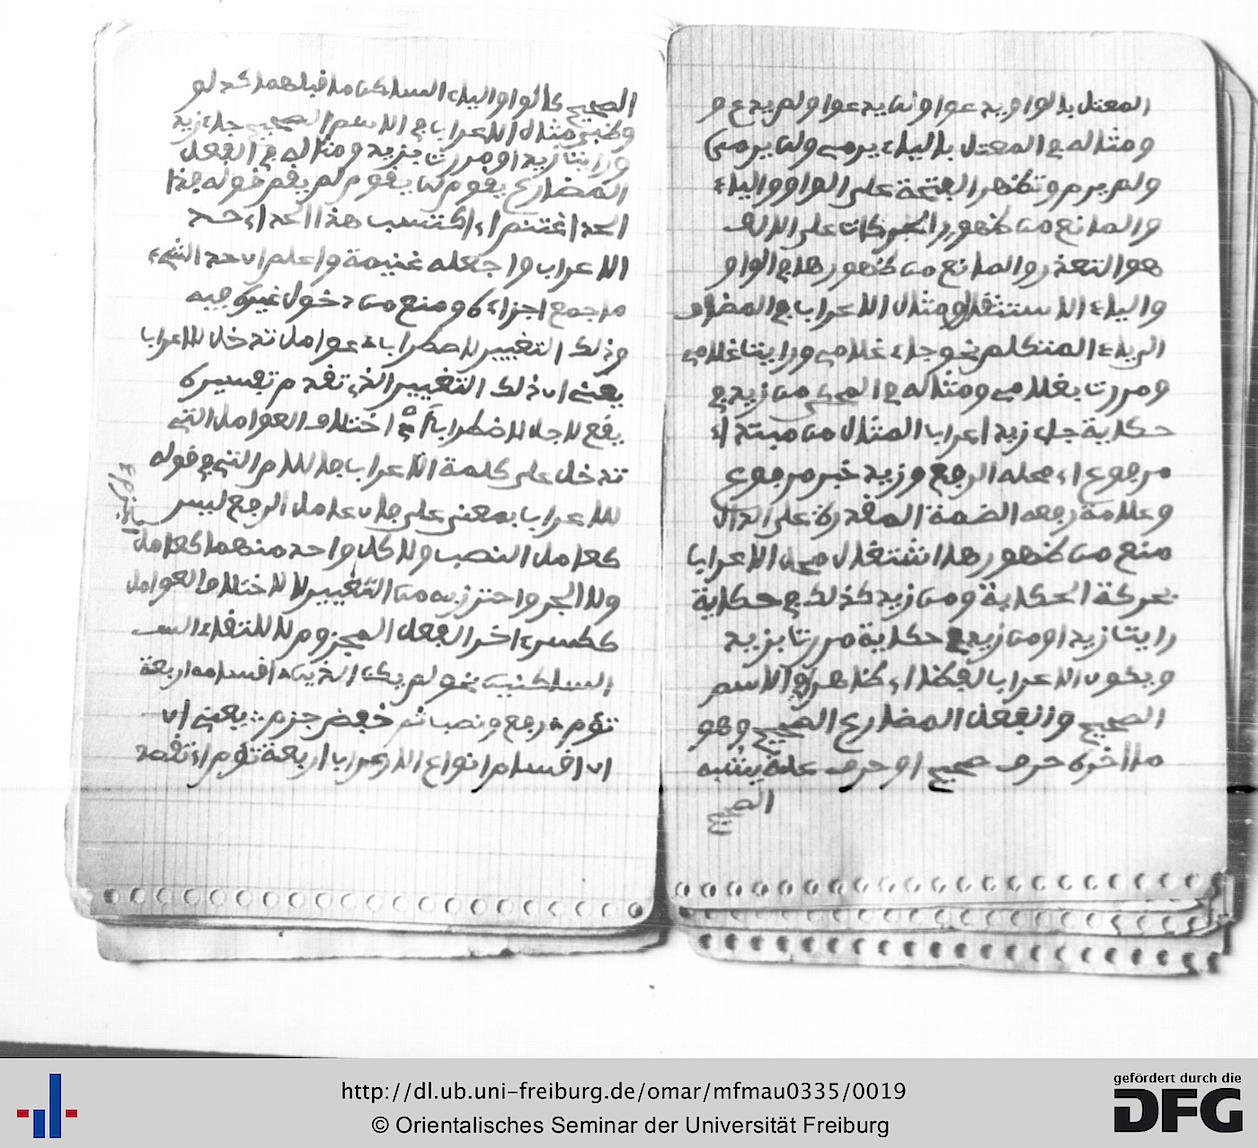 المعتل بالواو يدعوا ولن يدعوا ولم يدع و
ومثاله في المعتل بالياء يرمي ولن يرمي
ولم يرم وتظهر الفتحة على الواو والياء
والمانع من ظهور الحركات على الالف
هو التعذر والمانع من ظهورها في الواو
والياء الاستثقال ومثال الاعراب في المضاف
الى ياء المتكلم نحو جاء غلامي ورايت غلامي
ومررت بغلامي ومثاله في المحكي من زيد في
حكاية جاء زيد اعراب المثال من مبتداء
مرفوع اي محله الرفع وزيد خبر مرفوع
وعلامة رفعه الضمة المقدرة على الدال
منع من ظهورها اشتغال محل الاعراب
بحركة الحكاية ومن زيد كذلك في حكاية
رايت زيدا ومن زيد في حكاية مررت بزيد
ويكون الاعراب لفظا اي ظاهرا في الاسم
الصحيح والفعل المضارع الصحيح وهو
ما اخره حرف صحيح او حرف علة يشبه
الصحيح
الصحيح كالواو والياء الساكن ما قبلهما كدلو
وظبي مثال الاعراب في الاسم الصحيح جاء زيد
ورايت زيدا ومررت بزيد ومثاله في الفعل
المضارع يقوم لن يقوم لم يقم قوله هذا
الحد اغتنم اي اكتسب هذا الحد اي حد
الاعراب واجعله غنيمة واعلم ان حد الشيء
ما جمع اجزاءه ومنع من دخول غيره فيه
وذلك التغيير لاضطراب عوامل تدخل للاعراب
يعني ان ذلك التغيير الذي تقدم تفسيره
يقع لاجل الاضطراب اي اختلاف العوامل التي
تدخل على كلمة الاعراب فاللام التي في قوله
للاعراب بمعنى على فان عامل الرفع ليس
كعامل النصب ولا كل واحد منهما كعامل
ولا الجر واحترز به من التغيير لا لاختلاف العوامل
ككسرة اخر الفعل المجزوم لالتقاء
الساكنين نحو لم يكن الذين اقسامه اربعة
تؤم رفع ونصب ثم خفض جزم يعني ان
ان اقسام انواع الاعراب اربعة تؤم اي تقصد
http://dl.ub.uni-freiburg.de/omar/mfmau0335/0019
© Orientalisches Seminar der Universität Freiburg
gefördert durch die
DFG